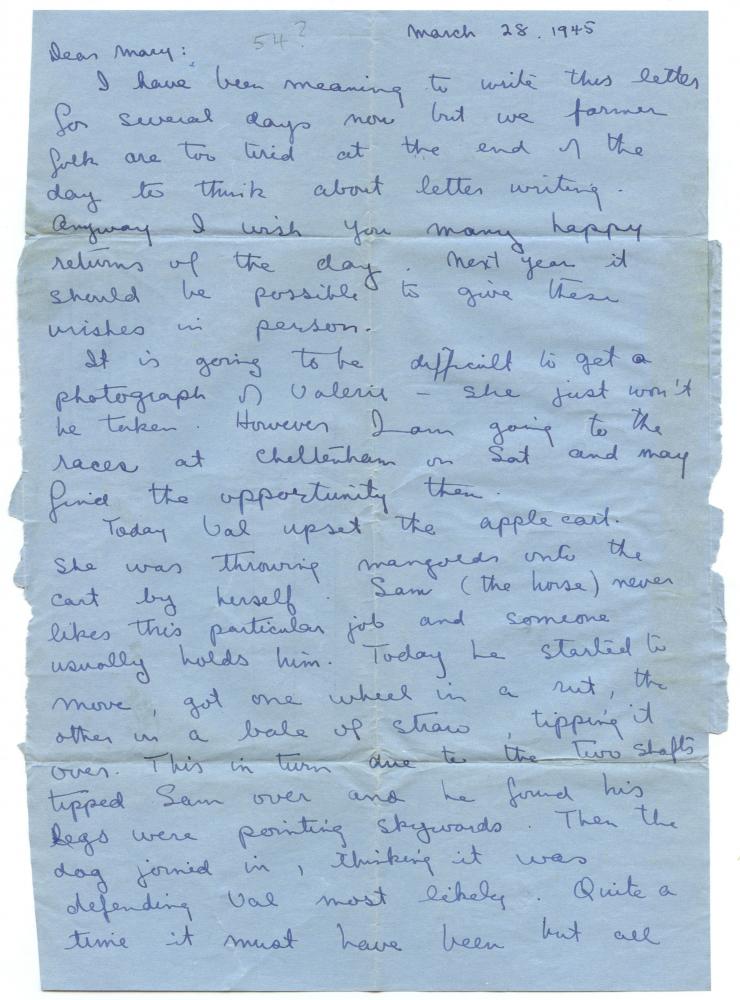 March 28. 1945
54?
Dear Mary:
I have been meaning to write this letter
for several days now but we farmer
folk are too tired at the end of the
day to think about letter writing.
Anyway I wish you many happy
returns of the day. Next year it
should be possible to give these
wishes in person.
It is going to be difficult to get a
photograph of Valerie - she just won't
be taken. However I am going to the
races at Cheltenham on Sat and may
find the opportunity then.
Today Val upset the apple cart.
She was throwing mangolds onto the
cart by herself. Sam (the horse) never
likes this particular job and someone
usually holds him. Today he started to
move, got one wheel in a rut, the
other in a bale of straw, tipping it
over. This in turn due to the two shafts
tipped Sam over and he found his
legs were pointing skywards. Then the
dog joined in, thinking it was
defending Val most likely. Quite a
time it must have been but all